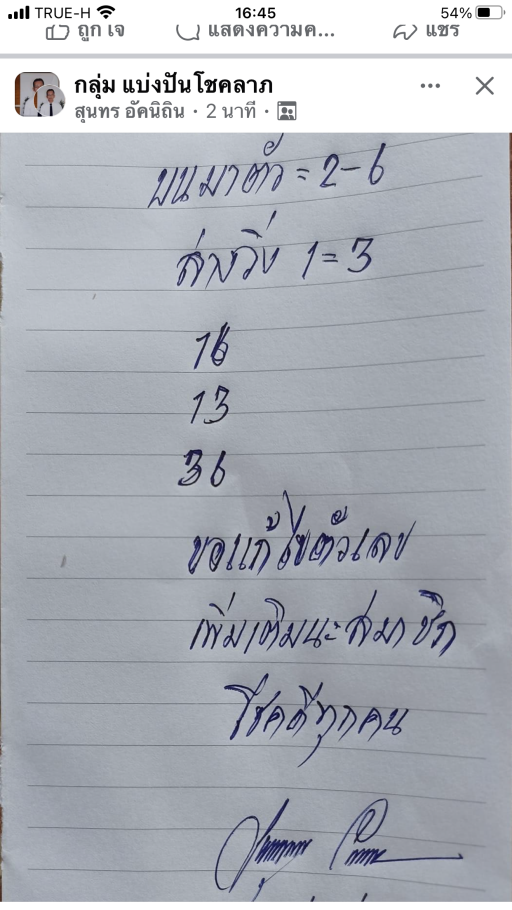 TRUE-H 16:45 54%
ถูกใจ แสดงความค... แชร์
กลุ่ม แบ่งปันโชคลาภ
สุนทร อัคนิถิน · 2 นาที ·
บนมาตัว = 2-6
ล่างวิ่ง 1=3
16
13
36
ขอแก้ไขตัวเลข
เพิ่มเติมนะสมาชิก
โชคดีทุกคน